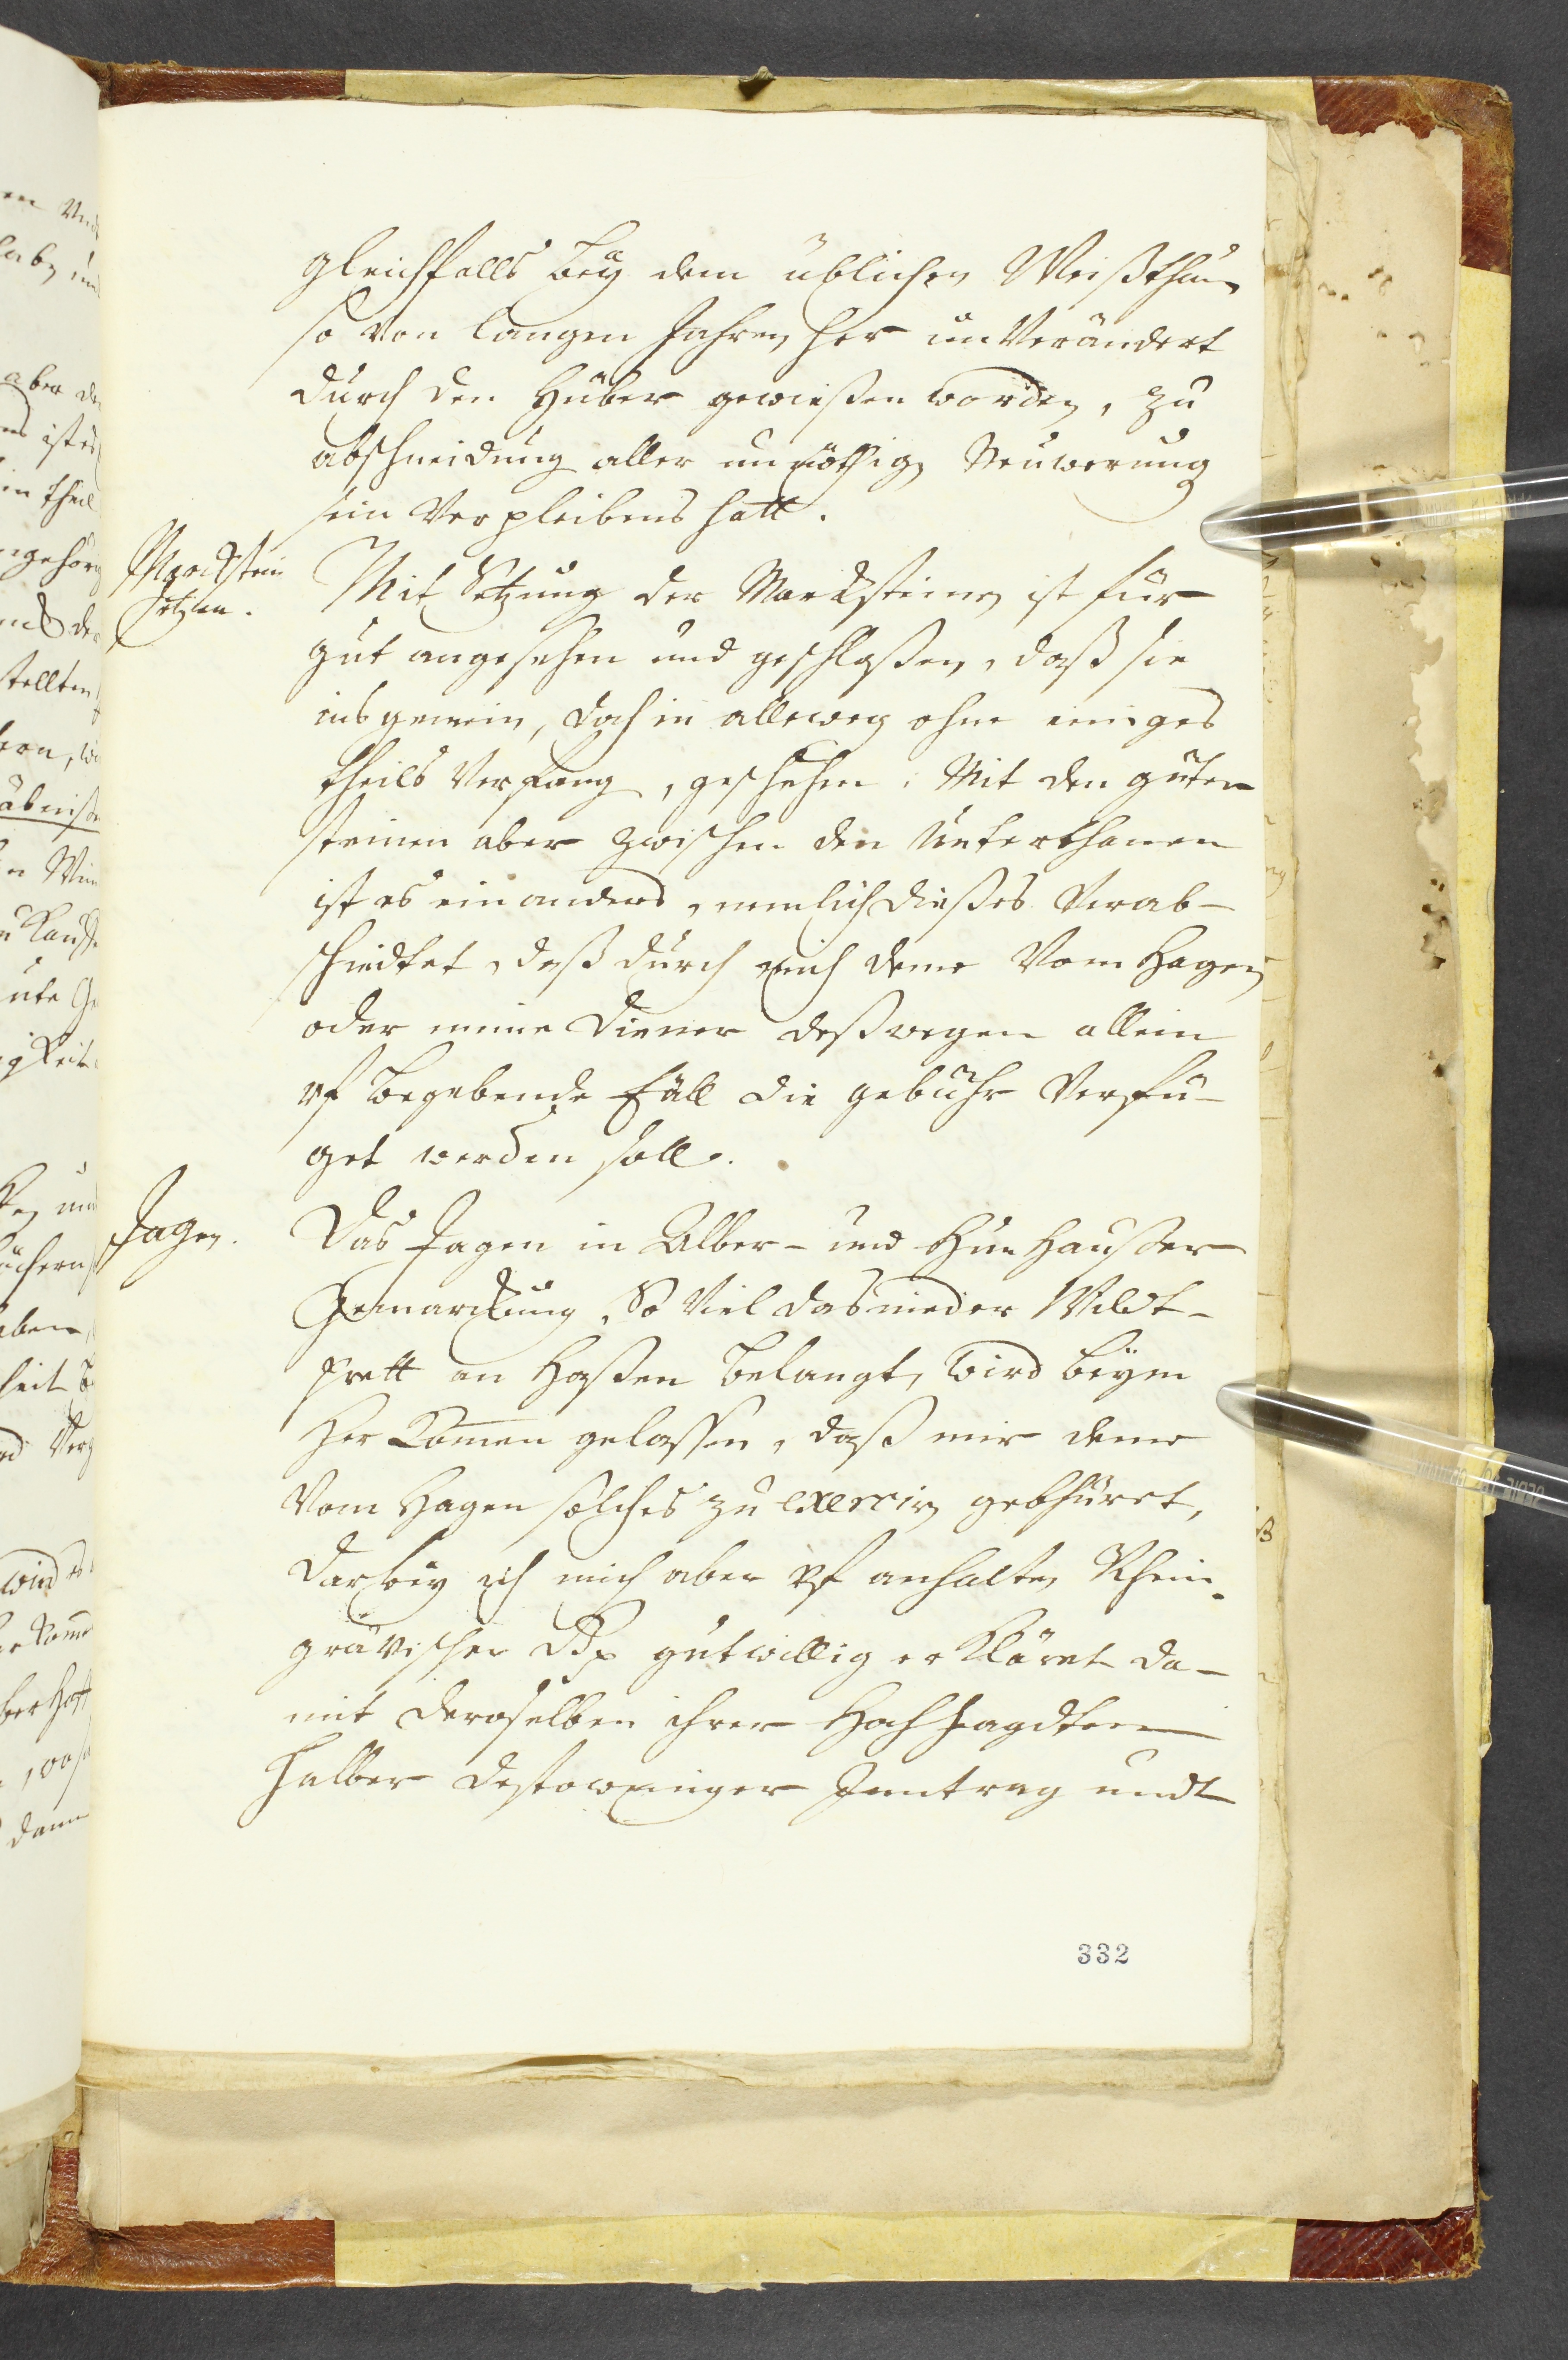 gleichfalls bey dem üblichen Weißthum
so von langen Jahren her unverändert
durch den Hüber gewießen worden, zu
abschneidung aller unnöthig Neuwerung
sein Verpleibens hatt.
Marckstein
setzen.
Mit Setzung der Marcksteinen ist für
gut angesehen und geschloßen, daß sie
ins gemein, doch in alleweg ohne einiges
theils Verfang, geschehen. Mit den güter
steinen aber zwischen den Unterthanen
ist es ein anders, nemlich dießes Verab-
schiedtet, daß durch mich deme Vom Hagen
oder meine Diener deßwegen allein
uf begebende Fäll die gebühr Verfü-
get werden soll.
Jagen.
Das Jagen in Alber- und Hunhaußer
Gemarckung, So viel das nieder Wildt-
prett an Haßen belangt, wird beym
Herkomen gelassen, daß mir deme
Vom Hagen solches zu exerciren gebhüret,
darbey ich mich aber uf anhalten Rhein-
grävischer gutwillig erkläret da-
mit deroselben ihrer Hochjagdten
halber destoweniger Inntrag undt
332